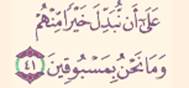 عَلَىٰٓ أَن نُّبَدِّلَ خَيْرًا مِّنْهُمْ
وَمَا نَحْنُ بِمَسْبُوقِينَ ٤١